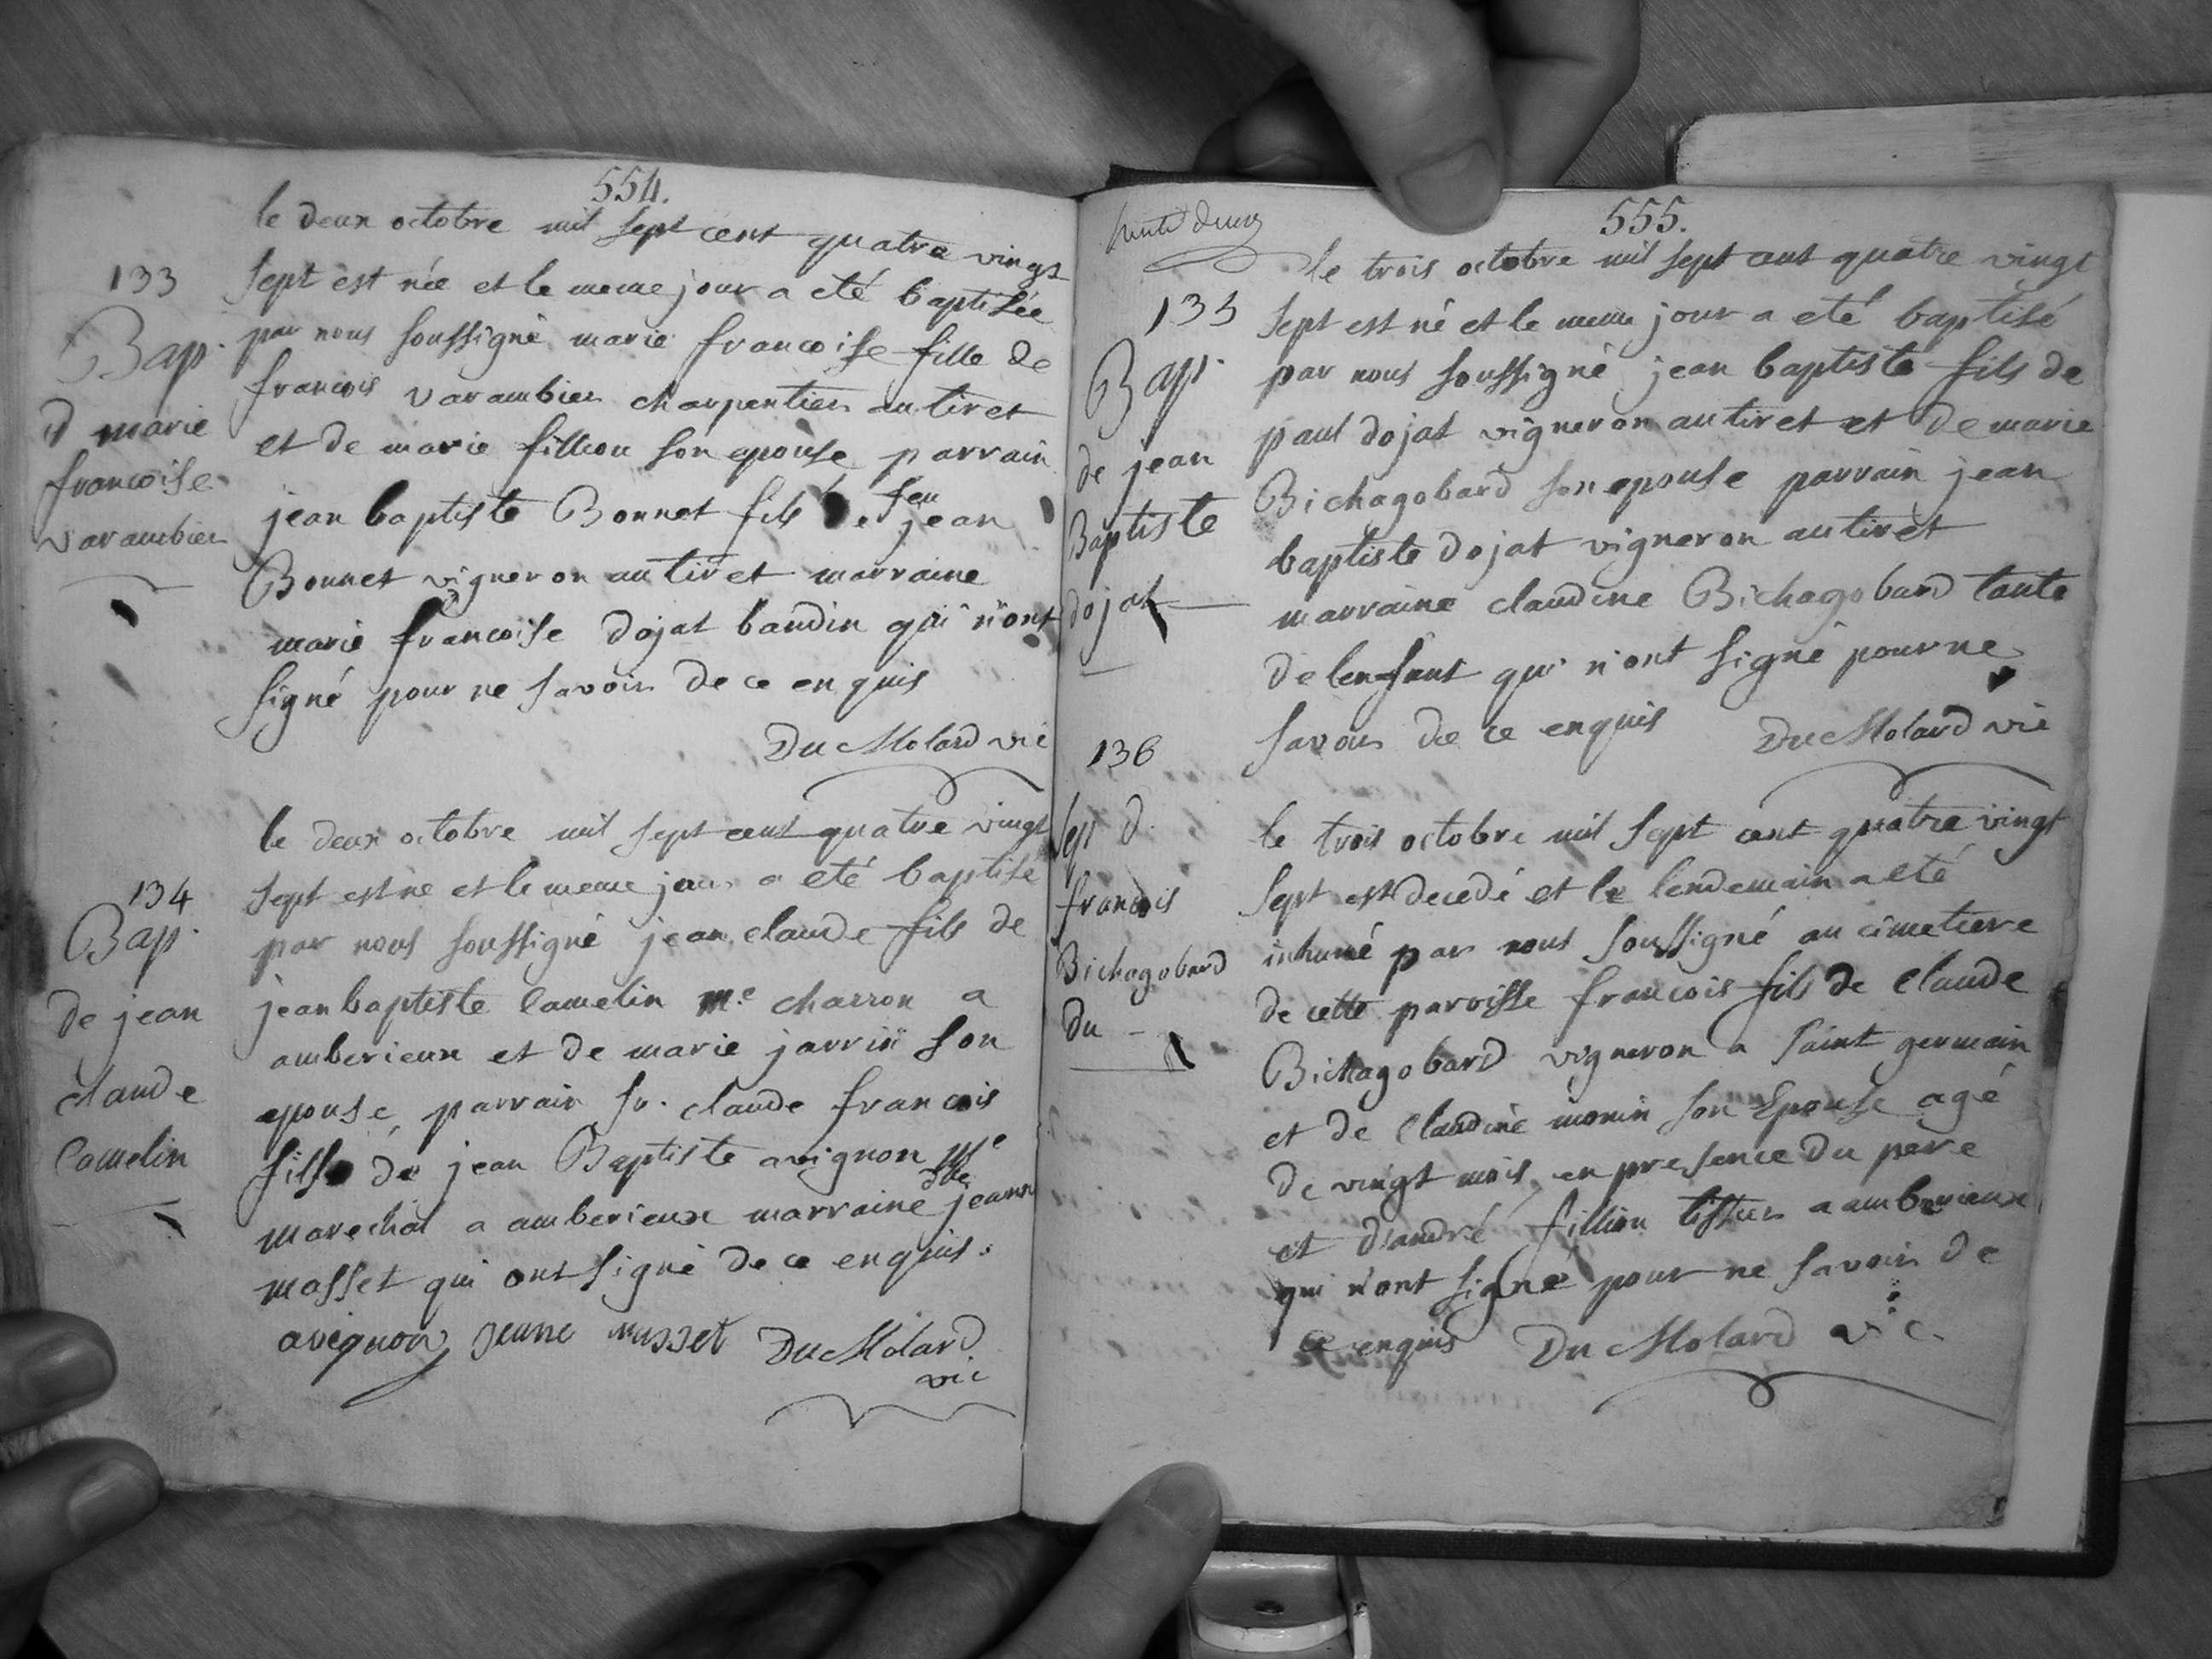 554.
le deux octobre mil sept cent quatre vingt
133
sept est née et le meme jour a eté baptisée
Bap.
par nous soussigné marie francoise fille de
d marie
francois varambier charpentier au tiret
francoise
et de marie fillion son epouse parrain
varambier
jean baptiste Bonnet fils de feu jean
Bonnet vigneron au tiret marraine
marie francoise dojat baudin qui n'ont
signé pour ne savoir de ce enquis
Du Molard vic
le deux octobre mil sept cent quatre vingt
134
sept est ne et le meme jour a eté baptisé
Bap.
par nous soussigné jean claude fils de
de jean
jean baptiste Camelin me charron a
claude
amberieux et de marie jarrin son
Camelin
epouse, parrain sr. claude francois
fils de jean Baptiste avignon me
marechal a amberieux marraine dlle jeanne
masset qui ont signé de ce enquis.
avignon jeanne masset Du Molard
vic
555.
le trois octobre mil sept cent quatre vingt
135
sept est né et le meme jour a eté baptisé
Bap.
par nous soussigné jean baptiste fils de
de jean
paul dojat vigneron au tiret et de marie
Baptiste
Bichagobard son epouse parrain jean
dojat
baptiste dojat vigneron au tiret
marraine claudine Bichagobard tante
de lenfant qui n'ont signé pour ne
savoir de ce enquis Du Molard vic
136
sep d.
francois
Bichagobard
du -
le trois octobre mil sept cent quatre vingt
sept est decedé et le lendemain a eté
inhumé par nous soussigné au cimetiere
de cette paroisse francois fils de Claude
Bichagobard vigneron a saint germain
et de Claudine monin son Epouse agé
de vingt mois, en presence du pere
et d'andré fillion tissier a amberieux
qui n'ont signe pour ne savoir de
ce enquis Du Molard vic